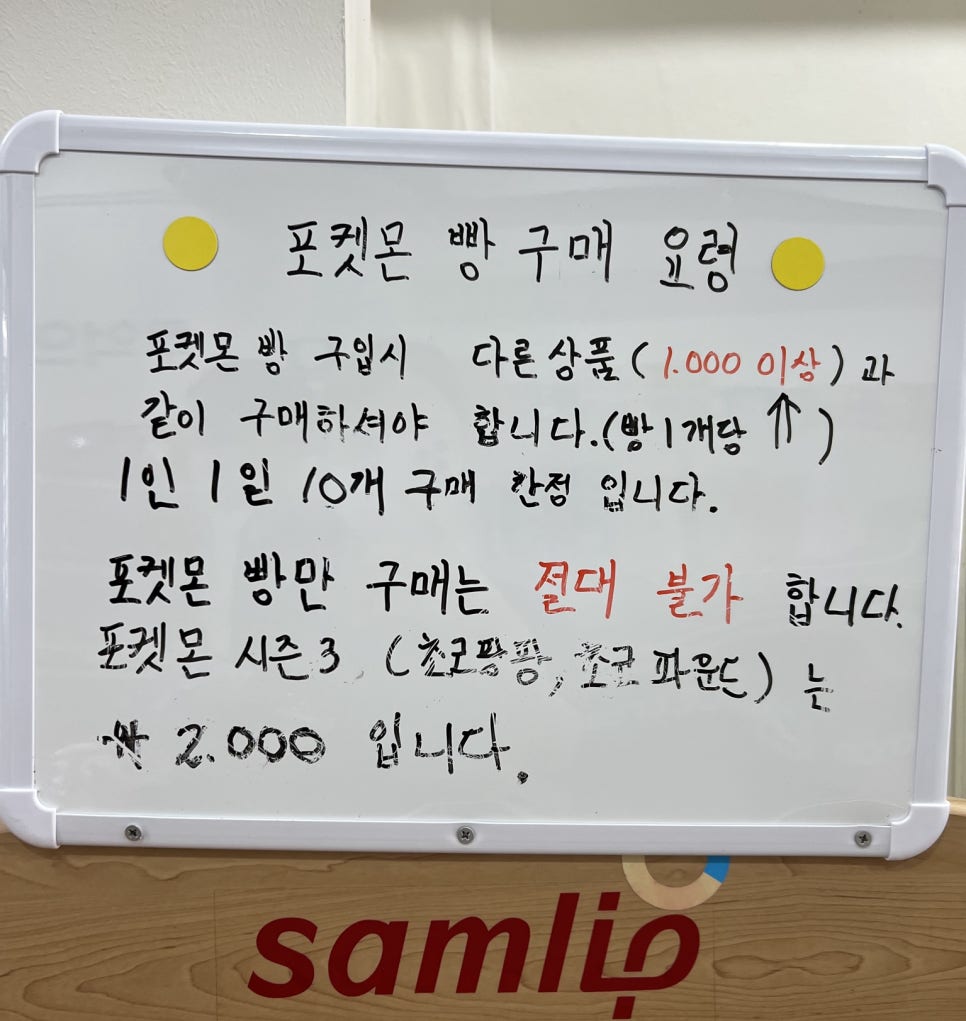 포켓몬 빵 구매 요령
포켓몬 빵 구입시 다른상품(1.000 이상)과
같이 구매하셔야 합니다.(빵1개당 ⇑)
1인 1일 10개 구매 한정 입니다.
포켓몬 빵만 구매는 절대 불가 합니다.
포켓몬 시즌3 (초코팡팡, 초코파운드)는
₩ 2.000 입니다.
samlip